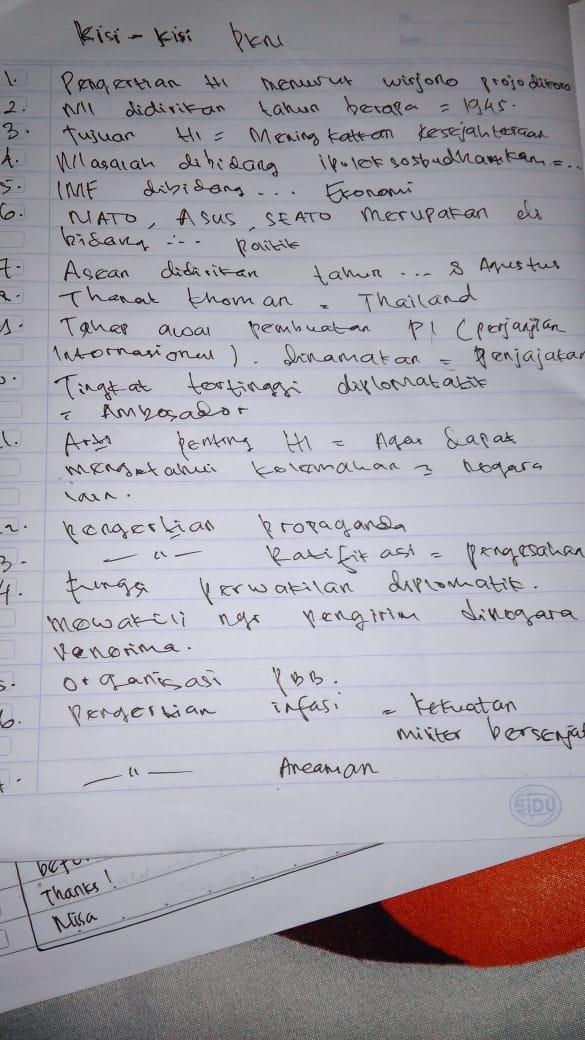 No.
Date:
Kisi - kisi PKN
1. Pengertian HI menurut wirjono projodikoro
2. NII didirikan tahun berapa = 1945.
3. Tujuan HI = Meningkatkan kesejahteraan
4. Masalah dibidang ipoleksosbudhankam = ...
5. IMF dibidang ... Ekonomi
6. NATO, ASUS, SEATO Merupakan di
bidang ... Politik
7. Asean didirikan tahun ... 8 Agustus
8. Thanat khoman = Thailand
9. Tahap awal pembuatan PI (perjanjian
Internasional). dinamakan = Penjajakan
0. Tingkat tertinggi diplomatik
= Ambasador
1. Arti penting HI = Agar dapat
mengetahui kelemahan 2 negara
lain.
2. pengertian Propaganda
3. — " — Ratifikasi = pengesahan
4. fungsi perwakilan diplomatik.
mewakili ngr pengirim dinegara
Penerima.
5. organisasi PBB.
6. Pengertian infasi = kekuatan
militer bersenjat
7. — " — Ancaman
SiDU
befo
Thanks!
Nisa